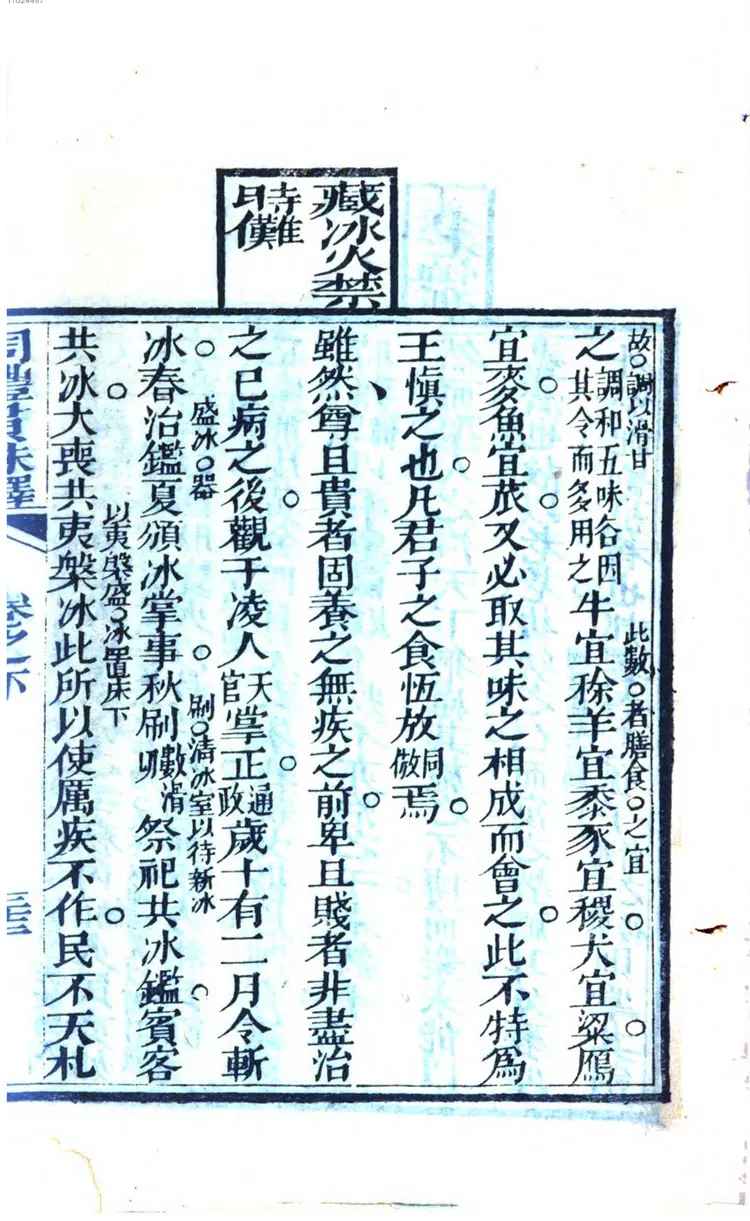 11624497
藏冰火禁
時難
日儺
故調以滑甘
之調和五味各因其令而多用之牛宜稌羊宜黍豕宜稷犬宜粱鴈
此數者膳食之宜
宜麥魚宜苽又必取其味之相成而會之此不特爲
王愼之也凡君子之食恆放同倣焉
雖然尊且貴者固養之無疾之前卑且賤者非盡治
之已病之後觀于凌人天官掌正通政歲十有二月令斬
盛冰器
冰春治鑑夏頒冰掌事秋刷數滑祭祀共冰鑑賓客
刷清冰室以待新冰
以夷槃盛冰置床下
共冰大喪共夷槃冰此所以使厲疾不作民不夭札
周禮貫珠釋
卷之下